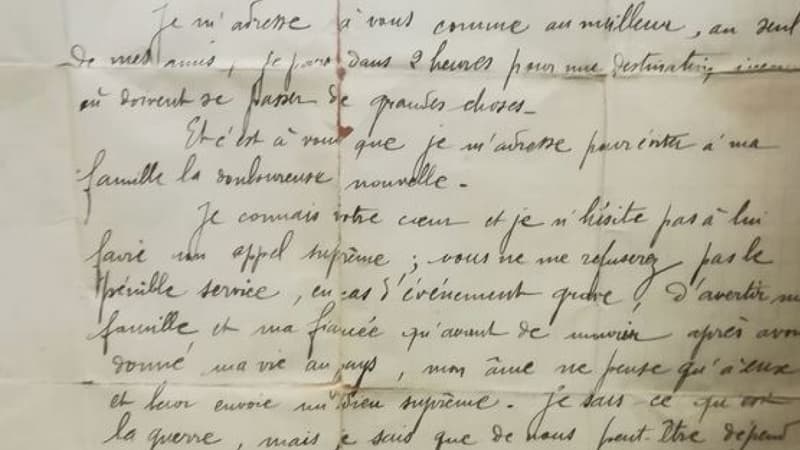 Je m'adresse à vous comme au meilleur, au seul
de mes amis, je pars dans 2 heures pour une destination
où doivent se passer de grandes choses.
Et c'est à vous que je m'adresse pour éviter à ma
famille la douloureuse nouvelle.
Je connais votre cœur et je n'hésite pas à lui
faire un appel suprême ; vous ne me refuserez pas le
pénible service, en cas d'événement grave, d'avertir ma
famille et ma fiancée qu'avant de mourir après avoir
donné ma vie au pays, mon âme ne pense qu'à eux
et leur envoie un adieu suprême. Je sais ce qu'est
la guerre, mais je sais que de nous peut-être dépend